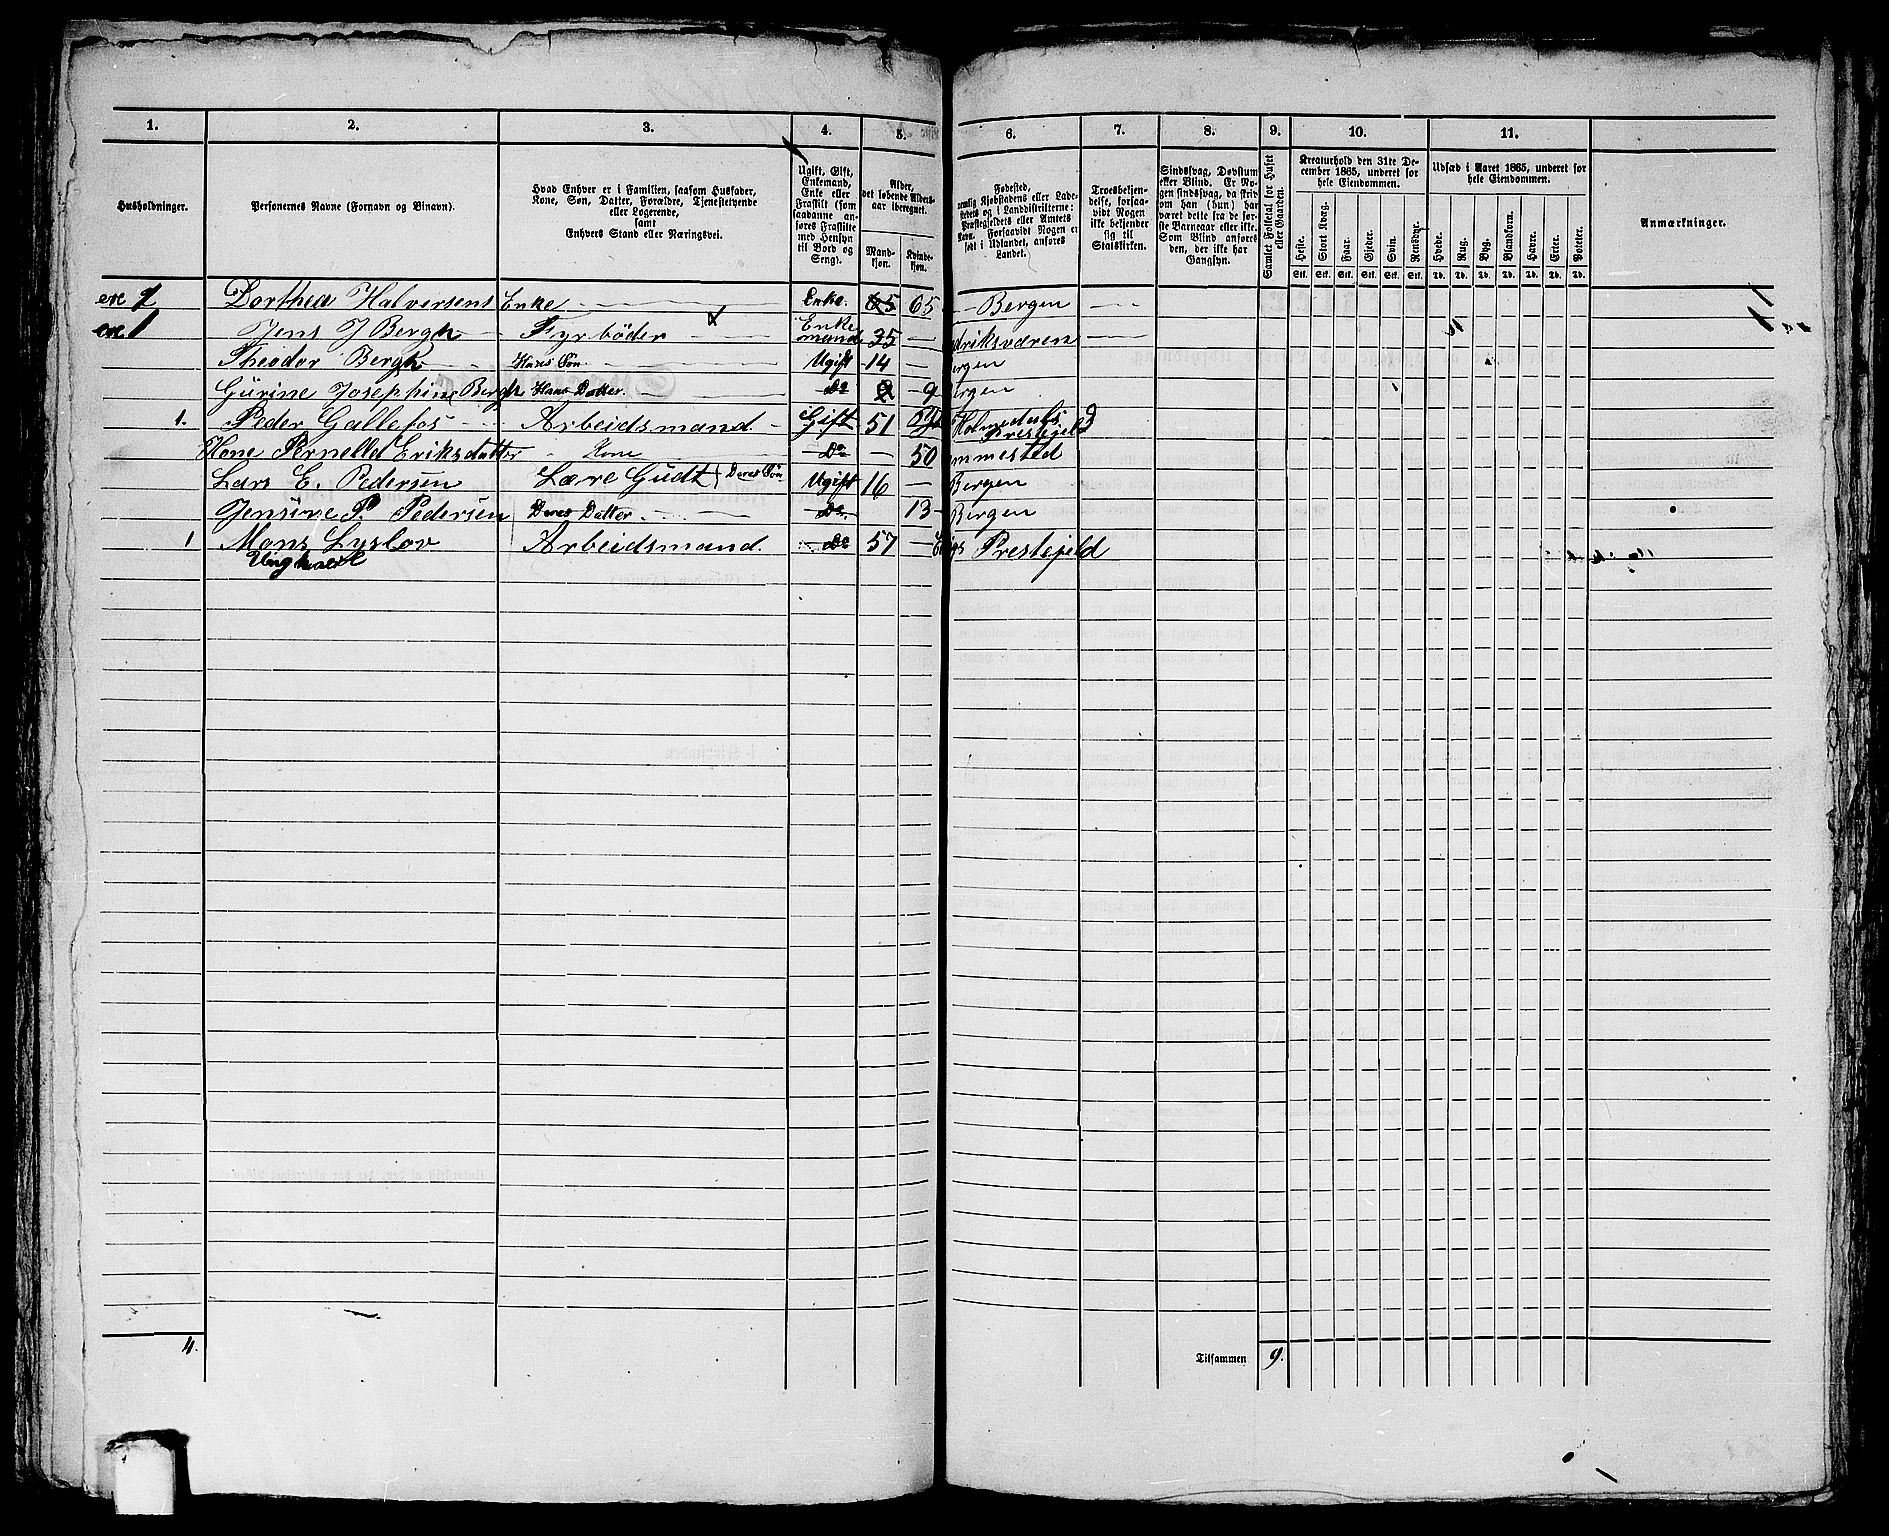 1. 2. 3. 4. 5. 6. 7. 8. 9. 10. 11.
Husholdninger.
Personernes Navne (Fornavn og Binavn).
Hvad Enhver er i Familien, saasom Husfader,
Kone, Søn, Datter, Forældre, Tjenestetyende
eller Logerende,
samt
Enhvers Stand eller Næringsvei.
Ugift, Gift,
Enkemand,
Enke eller
Fraskilt (som
saadanne an-
føres Fraskilte
med Hensyn
til Bord og
Seng).
Alder,
det løbende Alders-
aar iberegnet.
Mand-
kjøn.
Kvinde-
kjøn.
Fødested,
nemlig Kjøbstadens eller Lade-
stedets og i Landdistrikterne:
Præstegjeldets eller Amtets
Navn. Forsaavidt Nogen er
født i Udlandet, anføres
Landet.
Troesbekjen-
delse, forsaa-
vidt Nogen
ikke bekjender
sig til
Statskirken.
Sindssvag, Døvstum
eller Blind. Er No-
gen sindssvag, da skrives
om han (hun) har
været dette fra de før-
ste Barneaar eller ikke.
Som Blind anføres
den, der ikke har
Gangsyn.
Samlet Folketal for Huset
eller Gaarden.
Kreaturhold den 31te De-
cember 1865, underet for
hele Eiendommen.
Heste. Stort Kvæg. Faar. Gjeder. Svin. Rensdyr.
Stk. Stk. Stk. Stk. Stk. Stk.
Udsæd i Aaret 1865, underet for
hele Eiendommen.
Hvede. Rug. Byg. Blandkorn. Havre. Erter. Poteter.
Td. Td. Td. Td. Td. Td. Td.
Anmærkninger.
1 Dorthea Halversens Enke Enke. 65 65 Bergen 1
1 Jens J Bergh Fyrbøder x Enke mand 35 — driksværen 1
Theodor Bergh Hans Søn Ugift 14 — ergen
Gurine Josephine Bergh Hans Datter. Do 9 ergen
1. Peder Gallefos Arbeidsmand. Gift 51 Holmedals Prestejeld
Kone Pernelle Eriksdatter Kone Do — 50 mmestad
Lars E. Pedersen Lære Gudt Deres Søn Ugift 16 — Bergen
Jensine P. Pedersen Deres Datter Do. 13 Bergen
1 Mons Lyslov Arbeidsmand. Do 57 — Prestejeld
Ungkarl
4. Tilsammen 9.